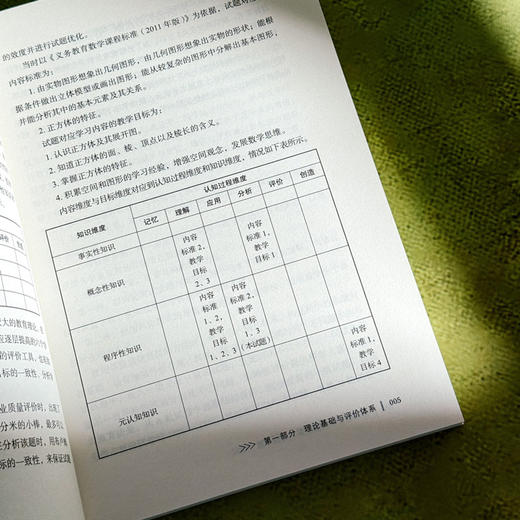 的效度并进行试题优化。
当时以《义务教育数学课程标准（2011年版）》为依据，试题对应
内容标准为：
1. 由实物图形想象出几何图形，由几何图形想象出实物的形状；能根
据条件做出立体模型或画出图形；能从较复杂的图形中分解出基本图形，
并能分析其中的基本元素及其关系。
2. 正方体的特征。
试题对应学习内容的教学目标为：
1. 认识正方体及其展开图。
2. 知道正方体的面、棱、顶点以及棱长的含义。
3. 掌握正方体的特征。
4. 积累空间和图形的学习经验，增强空间观念，发展数学思维。
内容维度与目标维度对应到认知过程维度和知识维度，情况如下表所示。
知识维度
认知过程维度
记忆
理解
应用
分析
评价
创造
事实性知识
概念性知识
内容
标准2，
教学
目标
2、3
内容
标准1，
教学
目标1
程序性知识
内容
标准
1、2，
教学
目标
1、2、3
内容
标准2，
教学
目标
1、3
（本试题）
元认知知识
内容
标准1，
教学
目标4
第一部分 理论基础与评价体系
005
大的教育理论，
应逐层提高的六个
的评价工具，也
目标的一致性、分析
业质量评价时，出
分米的小棒，最多
在分析该题时，用
标的一致性，来保证试题